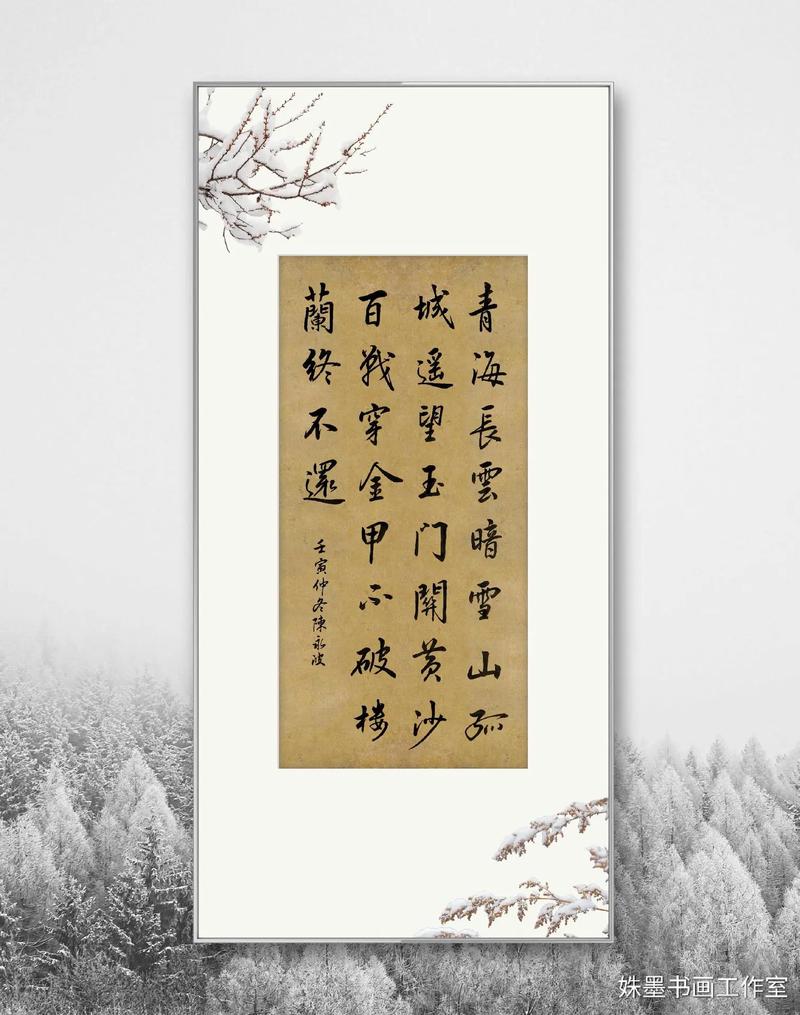 青海長雲暗雪山孤
城遥望玉门開黄沙
百戰穿金甲不破楼
蘭終不還
壬寅仲冬陳永波
姝墨书画工作室